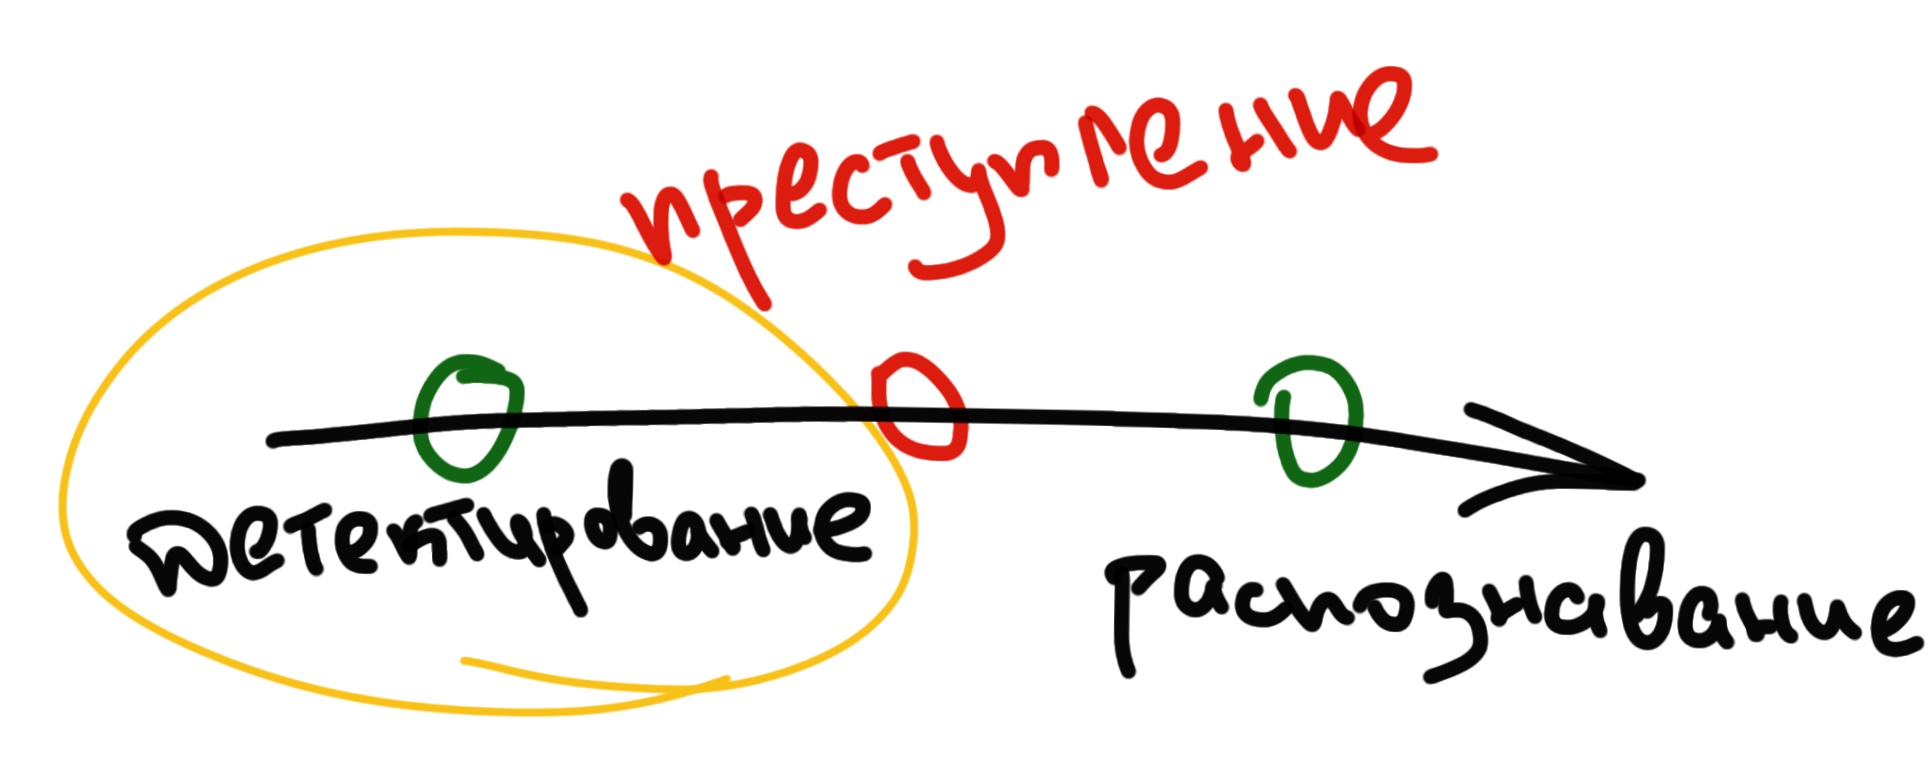 преступление
детектирование
распознавание